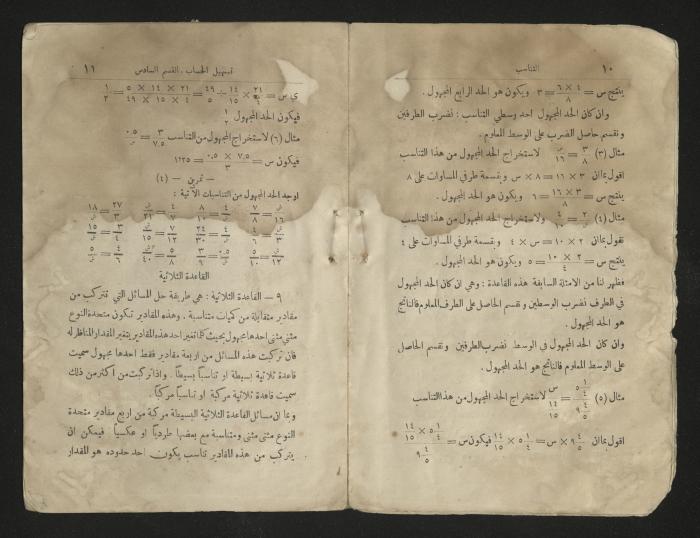 ١٠
التناسب
ينتج س = ٤ × ٦ / ٨ = ٣ ويكون هو الحد الرابع المجهول .
وان كان الحد المجهول احد وسطي التناسب : نضرب الطرفين
ونقسم حاصل الضرب على الوسط المعلوم .
مثال (٣) ٣/٨ = س/١٦ لاستخراج الحد المجهول من هذا التناسب
اقول بما ان ٣ × ١٦ = ٨ × س وبقسمة طرفي المساوات على ٨
ينتج س = ٣ × ١٦ / ٨ = ٦ ويكون هو الحد المجهول .
مثال (٤) س/٢ = ٤/١٠ ولاستخراج الحد المجهول من هذا التناسب
نقول بما ان ٢ × ١٠ = س × ٤ وبقسمة طرفي المساوات على ٤
ينتج س = ٢ × ١٠ / ٤ = ٥ ويكون هو الحد المجهول .
فظهر لنا من الامثلة السابقة هذه القاعدة : وهي ان كان الحد المجهول
في الطرف نضرب الوسطين ونقسم الحاصل على الطرف المعلوم فالناتج
هو الحد المجهول .
وان كان الحد المجهول في الوسط نضرب الطرفين ونقسم الحاصل
على الوسط المعلوم فالناتج هو الحد المجهول .
مثال (٥) ٥ ١/٤ / ٩ ٤/٥ = س / ١٤/١٥ لاستخراج الحد المجهول من هذا التناسب
اقول بما ان ٩ ٤/٥ × س = ٥ ١/٤ × ١٤/١٥ فيكون س = ٥ ١/٤ × ١٤/١٥ / ٩ ٤/٥
تسهيل الحساب . القسم السادس
١١
ي س = ٢١/٤ × ١٤/١٥ ÷ ٤٩/٥ = ٢١ × ١٤ × ٥ / ٤ × ١٥ × ٤٩ = ١/٢
فيكون الحد المجهول ١/٢
مثال (٦) لاستخراج المجهول من التناسب ٣/٧٫٥ = ٠٫٥/س
فيكون س = ٧٫٥ × ٠٫٥ / ٣ = ١٫٢٥
— تمرين — (٤)
اوجد الحد المجهول من التناسبات الآتية :
القاعدة الثلاثية
٩ — القاعدة الثلاثية : هي طريقة حل المسائل التي تتركب من
مقادير متقابلة من كميات متناسبة . وهذه المقادير تكون متحدة النوع
مثنى مثنى احدها مجهول بحيث كلما تغير احد هذه المقادير يتغير المقدار المناظر له
فان تركبت هذه المسائل من اربعة مقادير فقط احدها مجهول سميت
قاعدة ثلاثية بسيطة او تناسباً بسيطاً . واذا تركبت من أكثر من ذلك
سميت قاعدة ثلاثية مركبة او تناسباً مركباً .
وبما ان مسائل القاعدة الثلاثية البسيطة مركبة من اربع مقادير متحدة
النوع مثنى مثنى ومتناسبة مع بعضها طردياً او عكسياً فيمكن ان
يتركب من هذه المقادير تناسب يكون احد حدوده هو المقدار